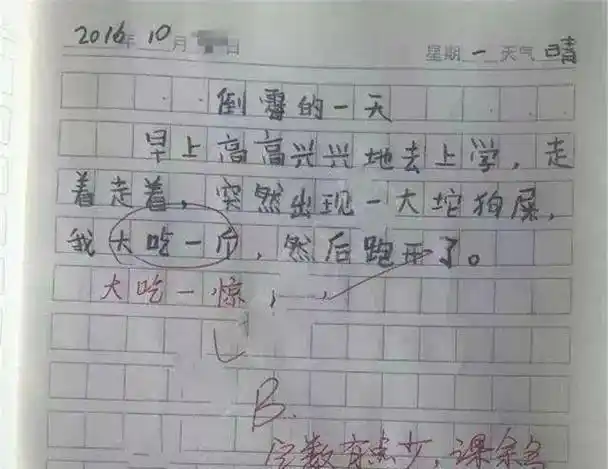 2016年10月 日 星期一 天气 晴
倒霉的一天
早上高高兴兴地去上学，走
着走着，突然出现一大坨狗屎，
我大吃一斤，然后跑开了。
大吃一惊
B.
字数有点少，课余多